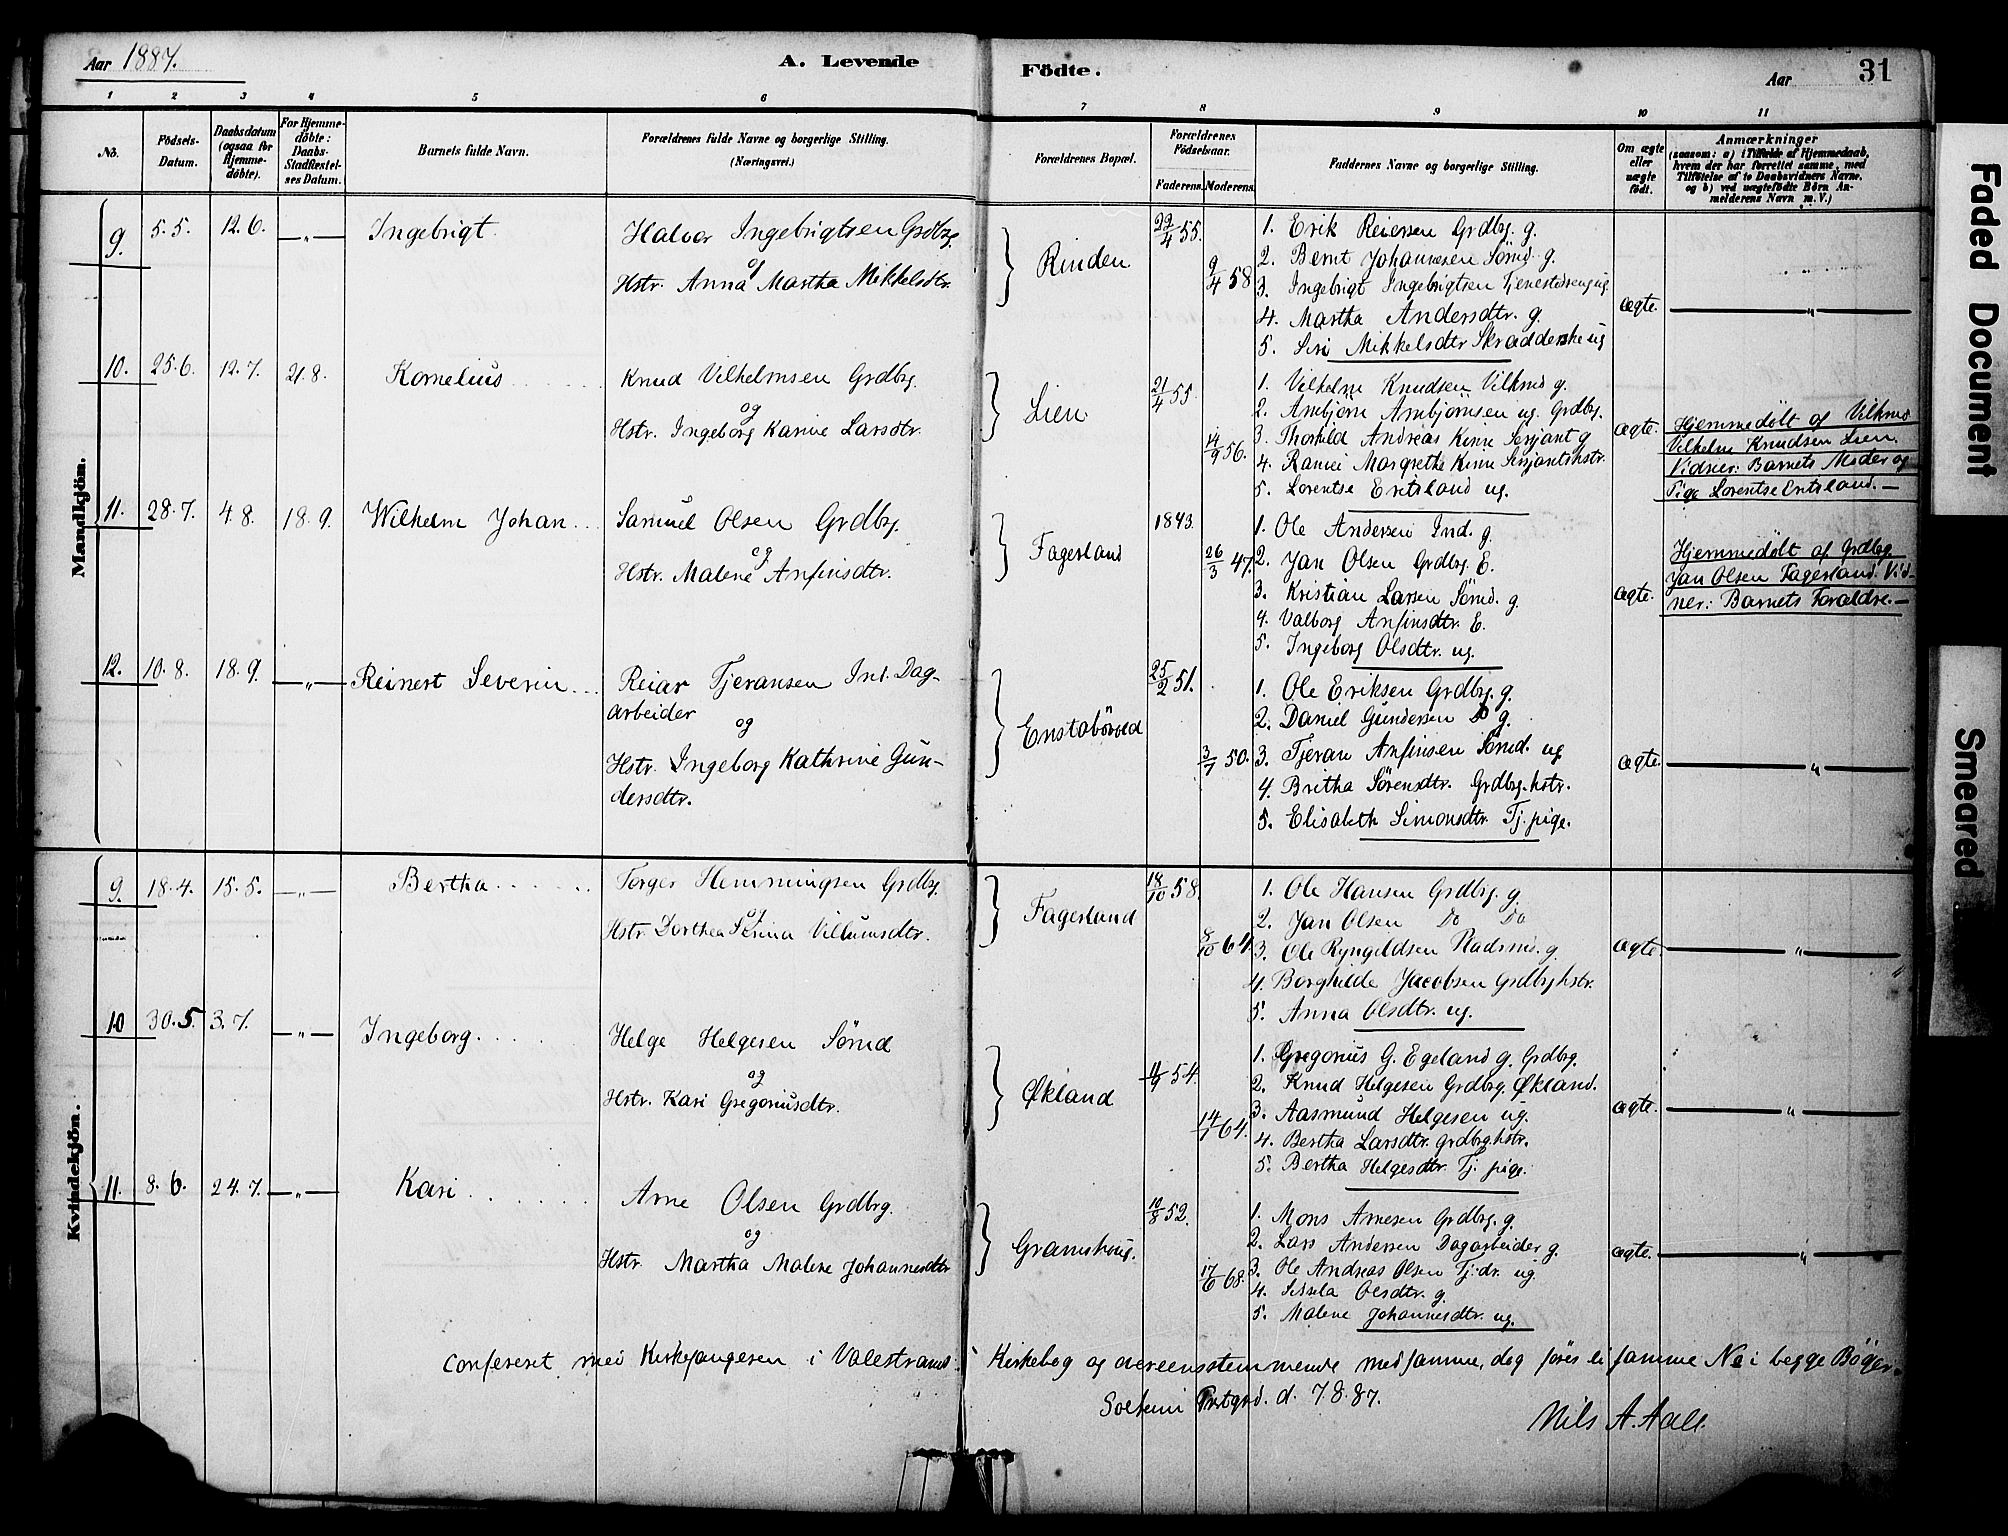 Aar 1887.
A. Levende Födte.
Aar
31
1 2 3 4 5 6 7 8 9 10 11
No.
Födsels-Datum.
Daabsdatum (ogsaa for Hjemme-döbte).
For Hjemme-döbte: Daabs-Stadfæstel-ses Datum.
Barnets fulde Navn.
Forældrenes fulde Navne og borgerlige Stilling. (Næringsvei.)
Forældrenes Bopæl.
Forældrenes Födselsaar.
Faderens. Moderens.
Faddernes Navne og borgerlige Stilling.
Om ægte eller uægte födt.
Anmærkninger
(saasom: a) i Tilfælde af Hjemmedaab,
hvem der har forrettet samme, med
Tilföielse af to Daabsvidners Navne,
og b) ved uægtefödte Börn An-
melderens Navn m. V.)
Mandkjön.
9. 5.5. 12.6. —"— Ingebrigt.
Halvor Ingebrigtsen Grdbrg.
og
Hstr. Anna Martha Mikkelsdtr.
Rinden
22/4 55. 9/4 58
1. Erik Reiersen Grdbrg. g.
2. Bernt Johannesen Sömd. g.
3. Ingebrigt Ingebrigtsen Tjenestedreng ug.
4. Martha Andersdtr. g.
5. Siri Mikkelsdtr Skrædderske ug
ægte. —"—
10. 25.6. 12.7. 21.8. Kornelius
Knud Vilhelmsen Grdbrg.
og
Hstr. Ingeborg Karine Larsdtr.
Lien
21/4 55. 14/9 56.
1. Vilhelm Knudsen Vilkmd g.
2. Ambjörn Ambjörnsen ug. Grdbrg.
3. Thorkild Andreas Kinne Serjant g
4. Ranvei Margrethe Kinne Serjantshstr.
5. Lorentse Eritsland ug.
ægte.
Hjemmedöbt af Vilkmd
Vilhelm Knudsen Lien.
Vidner: Barnets Moder og
Pige Lorentse Eritsland.—
11. 28.7. 4.8. 18.9. Wilhelm Johan
Samuel Olsen Grdbrg.
og
Hstr. Malene Anfinsdtr.
Fagerland
1843. 26/3 47.
1. Ole Andersen Ind. g.
2. Jan Olsen Grdbrg. E.
3. Kristian Larsen Sömd. g.
4. Valborg Anfinsdtr. E.
5. Ingeborg Olsdtr. ug.
ægte.
Hjemmedöbt af Grdbrg.
Jan Olsen Fagerland. Vid-
ner: Barnets Forældre.—
12. 10.8. 18.9. —"— Reinert Severin
Reiar Tjeransen Ind. Dag-
arbeider
og
Hstr. Ingeborg Kathrine Gun-
dersdtr.
25/2 51. 3/7 50.
1. Ole Eriksen Grdbrg. g.
2. Daniel Gundersen Do g.
3. Tjeran Anfinsen Sömd. ug
4. Britha Sörensdtr. Grdbrg.hstr.
5. Elisabeth Simonsdtr. Tj. pige.
ægte. —"—
Kvindekjön.
9. 18.4. 15.5. —"— Bertha
Torger Hemmingsen Grdbrg.
og
Hstr. Dorthea Serina Villumsdtr.
Fagerland
18/10 58. 8/10 64.
1. Ole Hansen Grdbrg. g.
2. Jan Olsen Do Do
3. Ole Ryngildsen Pladsmd. g.
4. Borghilde Jacobsen Grdbrghstr.
5. Anna Olsdtr. ug.
ægte. —"—
10 30.5. 3.7. —"— Ingeborg.
Helge Helgesen Sömd
og
Hstr. Kari Gregoriusdtr.
Økland
54. 14/7 64.
1. Gregorius G. Egeland g. Grdbrg.
2. Knud Helgesen Grdbrg. Økland.
3. Aasmund Helgesen ug.
4. Bertha Larsdtr. grdbrghstr.
5. Bertha Helgesdtr. Tj. pige.
ægte. —"—
11. 8.6. 24.7. —"— Kari
Arne Olsen Grdbrg.
og
Hstr. Martha Malene Johannesdtr
Gramshaug.
10/8 52. 17/6 68.
1. Mons Arnesen Grdbrg. g.
2. Lars Andersen Dagarbeider g.
3. Ole Andreas Olsen Tj.dr. ug.
4. Sissela Olsdtr. g.
5. Malene Johannesdtr ug.
ægte. —"—
Confereret med Kirkesangeren i Valestrands Kirkebog og overeensstemmende med samme, dog föres ei samme No i begge Böger.
Prstgrd. d. 7.8.87.
Nils A. Aall
Faded Document
Smeared